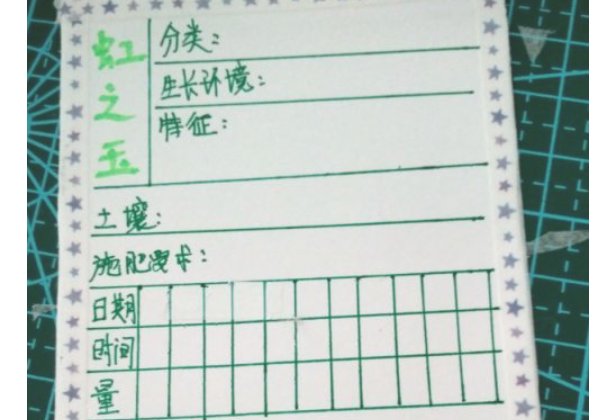 虹之玉
分类：
生长环境：
特征：
土壤：
施肥要求：
日期
时间
量